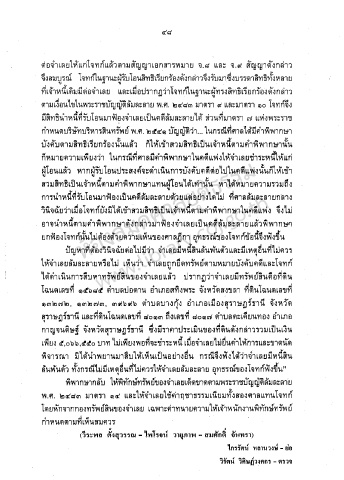 ๔๘
ต่อจำเลยให้แก่โจทก์แล้วตามสัญญาเอกสารหมาย จ.๘ และ จ.๙ สัญญาดังกล่าว
จึงสมบูรณ์ โจทก์ในฐานะผู้รับโอนสิทธิเรียกร้องดังกล่าวจึงรับมาซึ่งบรรดาสิทธิทั้งหลาย
ที่เจ้าหนี้เดิมมีต่อจำเลย และเมื่อปรากฏว่าโจทก์ในฐานะผู้ทรงสิทธิเรียกร้องดังกล่าว
ตามเงื่อนไขในพระราชบัญญัติล้มละลาย พ.ศ. ๒๔๘๓ มาตรา ๙ และมาตรา ๑๐ โจทก์จึง
มีสิทธินำหนี้ที่รับโอนมาฟ้องจำเลยเป็นคดีล้มละลายได้ ส่วนที่มาตรา ๗ แห่งพระราช
กำหนดบริษัทบริหารสินทรัพย์ พ.ศ. ๒๕๔๑ บัญญัติว่า... ในกรณีที่ศาลได้มีคำพิพากษา
บังคับตามสิทธิเรียกร้องนั้นแล้ว ก็ให้เข้าสวมสิทธิเป็นเจ้าหนี้ตามคำพิพากษานั้น
ก็หมายความเพียงว่า ในกรณีที่ศาลมีคำพิพากษาในคดีแพ่งให้จำเลยชำระหนี้ให้แก่
ผู้โอนแล้ว หากผู้รับโอนประสงค์จะดำเนินการบังคับคดีต่อไปในคดีแพ่งนั้นก็ให้เข้า
สวมสิทธิเป็นเจ้าหนี้ตามคำพิพากษาแทนผู้โอนได้เท่านั้น หาได้หมายความรวมถึง
การนำหนี้ที่รับโอนมาฟ้องเป็นคดีล้มละลายด้วยแต่อย่างใดไม่ ที่ศาลล้มละลายกลาง
วินิจฉัยว่าเมื่อโจทก์ยังมิได้เข้าสวมสิทธิเป็นเจ้าหนี้ตามคำพิพากษาในคดีแพ่ง จึงไม่
อาจนำหนี้ตามคำพิพากษาดังกล่าวมาฟ้องจำเลยเป็นคดีล้มละลายแล้วพิพากษา
ยกฟ้องโจทก์นั้นไม่ต้องด้วยความเห็นของศาลฎีกา อุทธรณ์ของโจทก์ข้อนี้จึงฟังขึ้น
ปัญหาที่ต้องวินิจฉัยต่อไปมีว่า จำเลยมีหนี้สินล้นพ้นตัวและมีเหตุอื่นที่ไม่ควร
ให้จำเลยล้มละลายหรือไม่ เห็นว่า จำเลยถูกยึดทรัพย์ตามหมายบังคับคดีและโจทก์
ได้ดำเนินการสืบหาทรัพย์สินของจำเลยแล้ว ปรากฏว่าจำเลยมีทรัพย์สินคือที่ดิน
โฉนดเลขที่ ๑๕๐๘๕ ตำบลบ่อดาน อำเภอสทิงพระ จังหวัดสงขลา ที่ดินโฉนดเลขที่
๑๓๒๗๒, ๑๓๒๗๓, ๓๙๖๙๖ ตำบลบางกุ้ง อำเภอเมืองสุราษฎร์ธานี จังหวัด
สุราษฎร์ธานี และที่ดินโฉนดเลขที่ ๘๐๑๓ ถึงเลขที่ ๘๐๑๗ ตำบลตะเคียนทอง อำเภอ
กาญจนดิษฐ์ จังหวัดสุราษฎร์ธานี ซึ่งมีราคาประเมินของที่ดินดังกล่าวรวมเป็นเงิน
เพียง ๕,๐๖๖,๕๕๐ บาท ไม่เพียงพอที่จะชำระหนี้ เมื่อจำเลยไม่ยื่นคำให้การและขาดนัด
พิจารณา มิได้นำพยานมาสืบให้เห็นเป็นอย่างอื่น กรณีจึงฟังได้ว่าจำเลยมีหนี้สิน
ล้นพ้นตัว ทั้งกรณีไม่มีเหตุอื่นที่ไม่ควรให้จำเลยล้มละลาย อุทธรณ์ของโจทก์ฟังขึ้น"
พิพากษากลับ ให้พิทักษ์ทรัพย์ของจำเลยเด็ดขาดตามพระราชบัญญัติล้มละลาย
พ.ศ. ๒๔๘๓ มาตรา ๑๔ และให้จำเลยใช้ค่าฤชาธรรมเนียมทั้งสองศาลแทนโจทก์
โดยหักจากกองทรัพย์สินของจำเลย เฉพาะค่าทนายความให้เจ้าพนักงานพิทักษ์ทรัพย์
กำหนดตามที่เห็นสมควร
(วีระพล ตั้งสุวรรณ - ไพโรจน์ วายุภาพ - สมศักดิ์ จันทรา)
ไกรรัตน์ - ย่อ
วิรัตน์ วิศิษฏ์วงศกร - ตรวจ